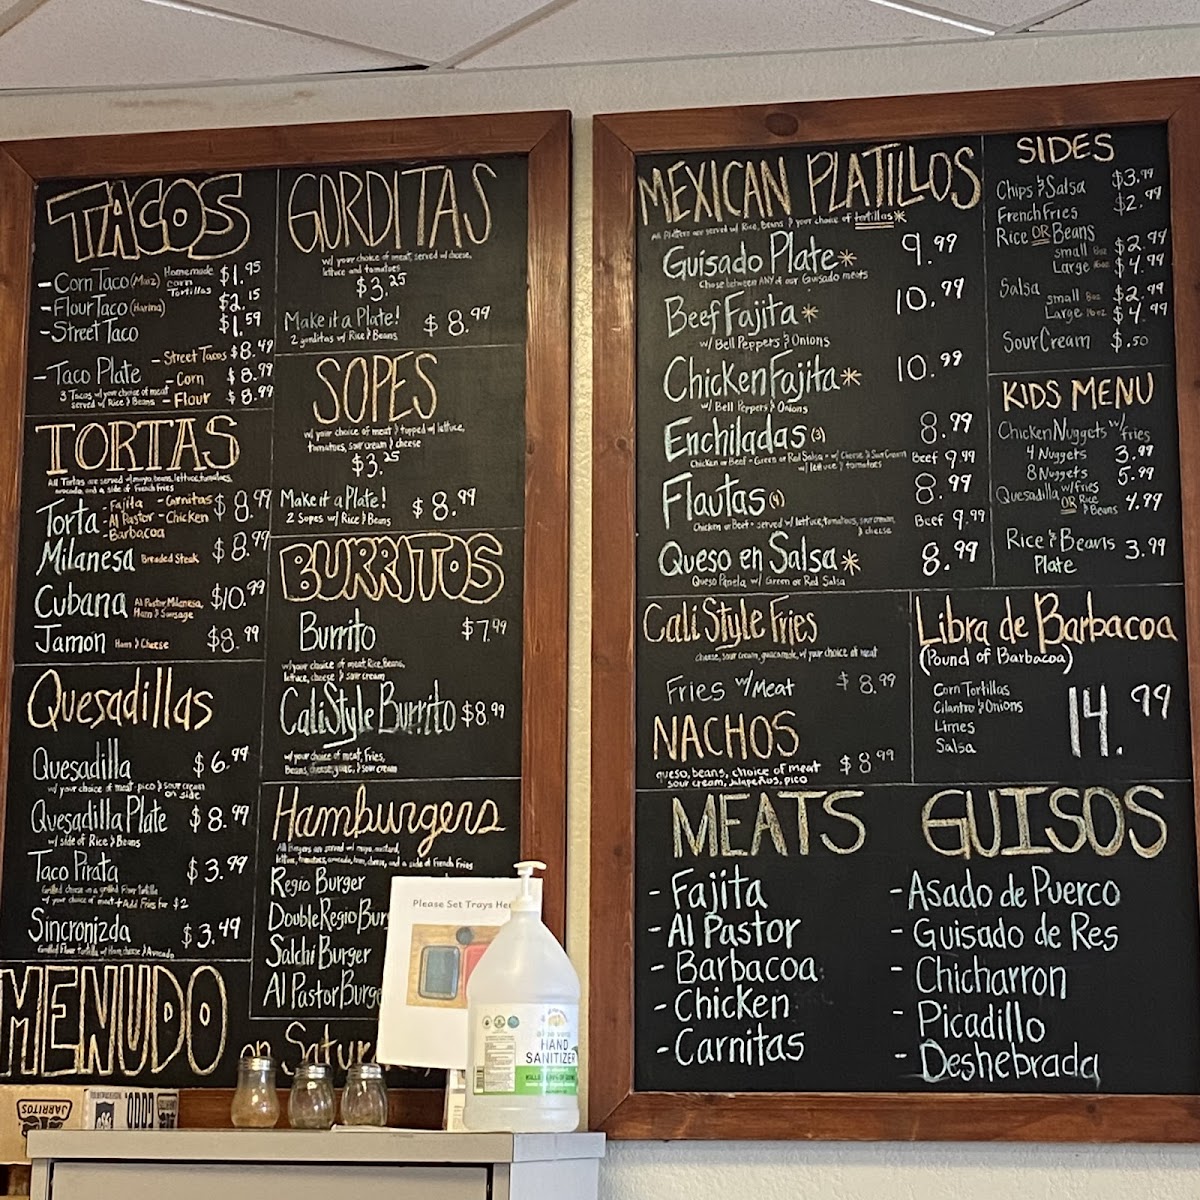 TACOS
- Corn Taco (Maiz) Homemade corn Tortillas $1.95
- Flour Taco (Harina) $2.15
- Street Taco $1.59
- Taco Plate - Street Tacos $8.49
- Corn $8.99
3 Tacos w/ your choice of meat
served w/ Rice & Beans - Flour $8.99
TORTAS
All Tortas are served w/ mayo, beans, lettuce, tomatoes,
avocado, and a side of French Fries
Torta - Fajita - Carnitas $8.99
- Al Pastor - Chicken
- Barbacoa
Milanesa Breaded Steak $8.99
Cubana Al Pastor, Milanesa, Ham & Sausage $10.99
Jamon Ham & Cheese $8.99
Quesadillas
Quesadilla $6.99
w/ your choice of meat - pico & sour cream
on side
Quesadilla Plate $8.99
w/ side of Rice & Beans
Taco Pirata $3.99
Grilled cheese in a grilled Flour tortilla
w/ your choice of meat + Add Fries for $2
Sincronizda $3.49
Grilled Flour tortilla w/ Ham, cheese & Avocado
MENUDO on Satur
GORDITAS
w/ your choice of meat, served w/ cheese,
lettuce and tomatoes
$3.25
Make it a Plate! $8.99
2 gorditas w/ Rice & Beans
SOPES
w/ your choice of meat & topped w/ lettuce,
tomatoes, sour cream & cheese
$3.25
Make it a Plate! $8.99
2 Sopes w/ Rice & Beans
BURRITOS
Burrito $7.99
w/ your choice of meat, Rice, Beans,
lettuce, cheese & sour cream
Cali Style Burrito $8.99
w/ your choice of meat, Fries,
Beans, cheese, guac, & sour cream
Hamburgers
All Burgers are served w/ mayo, mustard,
lettuce, tomatoes, avocado, ham, cheese, and a side of French Fries
Regio Burger
Double Regio Burg
Salchi Burger
Al Pastor Burge
Please Set Trays He
aloe vera
HAND
SANITIZER
JARRITOS
MEXICAN PLATILLOS
All Platters are served w/ Rice, Beans & your choice of tortillas*
Guisado Plate* 9.99
Chose between ANY of our Guisado meats
Beef Fajita* 10.99
w/ Bell Peppers & Onions
Chicken Fajita* 10.99
w/ Bell Peppers & Onions
Enchiladas (3) 8.99
Chicken or Beef - Green or Red Salsa - w/ Cheese & Sour Cream Beef 9.99
w/ lettuce & tomatoes
Flautas (4) 8.99
Chicken or Beef - served w/ lettuce, tomatoes, sour cream, Beef 9.99
& cheese
Queso en Salsa* 8.99
Queso Panela w/ Green or Red Salsa
SIDES
Chips & Salsa $3.99
French Fries $2.99
Rice OR Beans
small 8oz $2.99
Large 16oz $4.99
Salsa
small 8oz $2.99
Large 16oz $4.99
Sour Cream $.50
KIDS MENU
Chicken Nuggets w/ fries
4 Nuggets 3.99
8 Nuggets 5.99
Quesadilla w/ Fries
OR Rice & Beans 4.99
Rice & Beans
Plate 3.99
Cali Style Fries
cheese, sour cream, guacamole, w/ your choice of meat
Fries w/ Meat $8.99
NACHOS
queso, beans, choice of meat $8.99
sour cream, Jalapeños, pico
Libra de Barbacoa
(Pound of Barbacoa)
Corn Tortillas
Cilantro & Onions
Limes
Salsa
14.99
MEATS
- Fajita
- Al Pastor
- Barbacoa
- Chicken
- Carnitas
GUISOS
- Asado de Puerco
- Guisado de Res
- Chicharron
- Picadillo
- Deshebrada